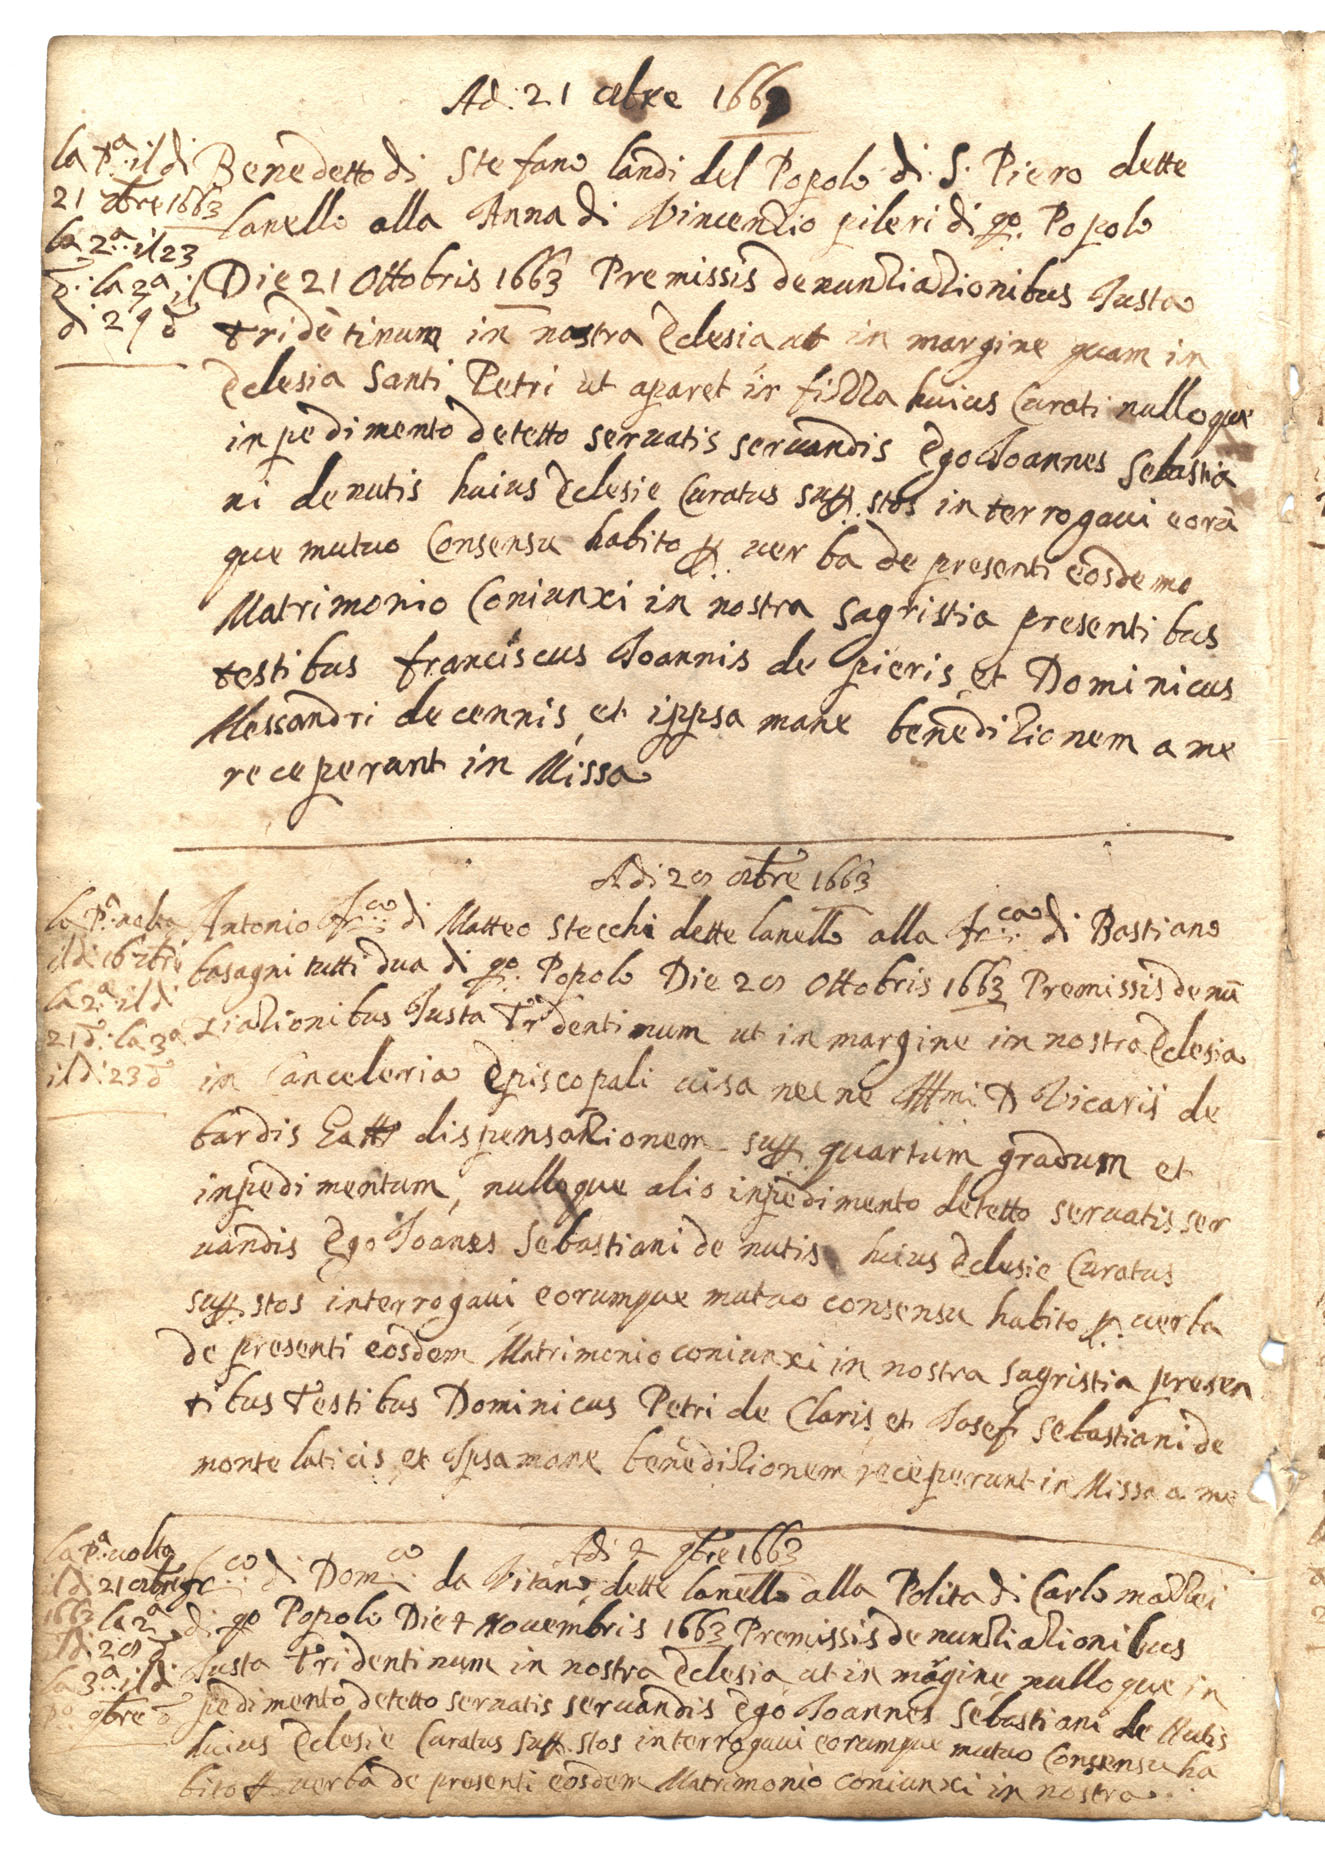 Ad: 21 8bre 1663
la P.ª il di
21 8bre 1663
la 2.ª il 23
d.º la 3ª il
di 29 d.º
Benedetto di Stefano landi del Popolo di S. Piero dette
lanello alla Anna di Vincenzio pileri di qo. Popolo
Die 21 Ottobris 1663 Premissis denunziazionibus Justa
tridētinum in nostra Eclesia ut in margine quam in
Eclesia Santi Petri ut aparet in filza huius Curati nulloque
inpedimento detetto servatis servandis Ego Joannes Sebastia
ni de nutis huius Eclesie Curatus supp. stos interrogaui eorū
que mutuo Consensu habito p. uerba de presenti eosdemo
Matrimonio Coniunxi in nostra Sagristia presentibus
testibus franciscus Joannis de pieris et Dominicus
Alessandri de cennis et ippsa mane benedizionem a me
receperunt in Missa
Adi 28 8bre 1663
la P.ª uolta
il di 16 8bre
la 2.ª il di
21 d.º la 3ª
il di 23 d.º
Antonio fr.co di Matteo Stecchi dette lanello alla fr.ca di Bastiano
basagni tutti dua di qo. Popolo Die 28 Ottobris 1663 Premissis denū
ziazionibus Justa Tridentinum ut in margine in nostra Eclesia
in Canceleria Episcopali uisa nec ne Illmi D Vicarii de
bardis dispensazionem supp. quartum gradum et
inpedimentum, nulloque alio inpedimento detetto servatis ser
uandis Ego Joanes Sebastiani de nutis huius Eclesie Curatus
supp. stos interrogaui eorumque mutuo consensu habito p. uerba
de presenti eosdem Matrimonio coniunxi in nostra sagristia presen
tibus Testibus Dominicus Petri de Claris et Josef Sebastiani de
monte laticis et Ipsa mane benedizionem receperunt in Missa a me
Adi 4 9bre 1663
la P.ª uolta
il di 21 8bre
1663 la 2ª
il di 28 d.º
la 3.ª il di
P.º 9bre d.º
fr.co di Dom.co da Vitano dette lanello alla Polita di Carlo mazzei
di qo Popolo Die 4 Nouembris 1663 Premissis denunziazionibus
Justa Tridentinum in nostra Eclesia ut in margine nulloque in
pedimento detetto servatis servandis Ego Joannes Sebastiani de Nutis
huius Eclesie Curatus supp. stos interrogaui eorumque mutuo Consensu ha
bito p. uerba de presenti eosdem Matrimonio coniunxi in nostra